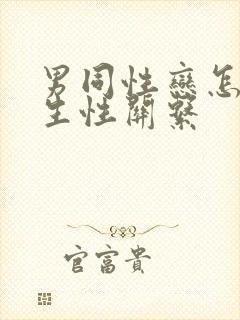 男同性戀怎
生性關繫
官富貴